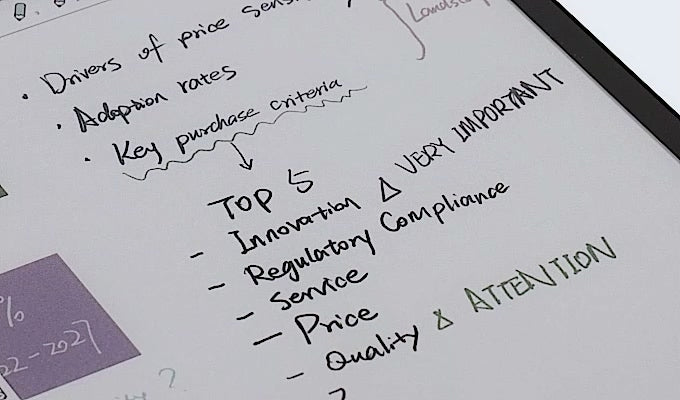 • Drivers of price
Landsc
• Adoption rates
• Key purchase criteria
TOP 5
- Innovation △ VERY IMPORTANT
- Regulatory Compliance
- Service
- Price
- Quality △ ATTENTION
%
22-2027
?
?